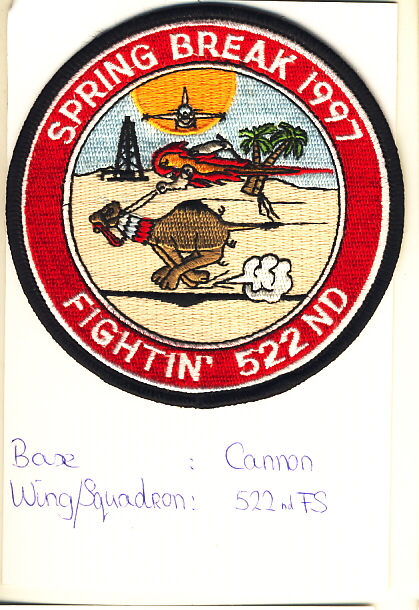 SPRING BREAK 1997
FIGHTIN' 522ND
Base : Cannon
Wing/Squadron: 522nd FS